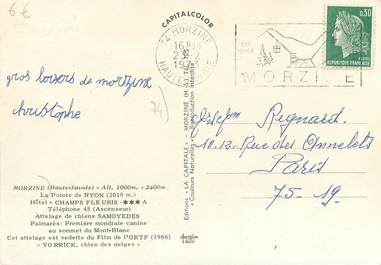 6 €
CAPITALCOLOR
74 MORZINE
16H30
HAUTE-SAVOIE
ETE
HIVER
MORZINE
0,30
REPUBLIQUE FRANÇAISE
gros baisers de morzine
christophe
74)
Regnard
10.12. Rue des Annelets
Paris
75-19.
MORZINE (Haute-Savoie) - Alt. 1000m. - 2400m.
La Pointe de NYON (2019 m.)
Hôtel « CHAMPS FLEURIS » ★★★ A
Téléphone 45 (Ascenseur)
Attelage de chiens SAMOYEDES
Palmarès: Première mondiale canine
au sommet du Mont-Blanc
Cet attelage est vedette du Film de l'ORTF (1966)
« YORRICK, chien des neiges »
Editions « LA CAPITALE » - MORZINE (H.-S.) Tél.
« Couleurs Naturelles » Reproduction Interdite